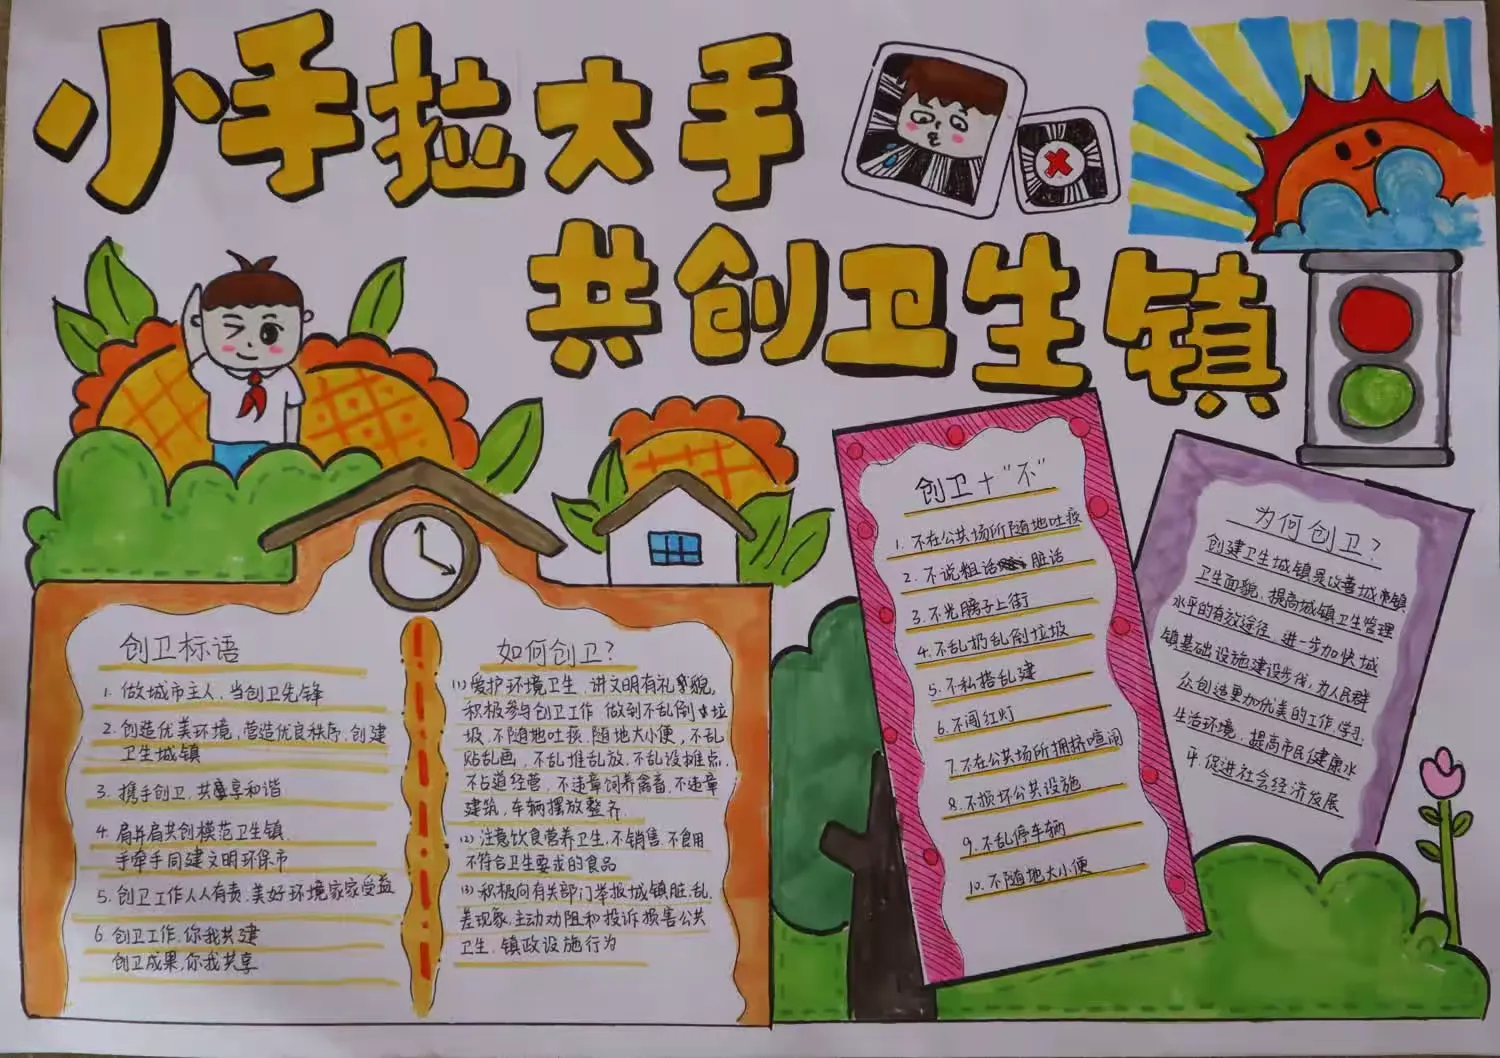 小手拉大手
共创卫生镇
创卫标语
1. 做城市主人,当创卫先锋
2. 创造优美环境,营造优良秩序,创建
卫生城镇
3. 携手创卫,共享和谐
4. 肩并肩共创模范卫生镇
手牵手同建文明环保市
5. 创卫工作人人有责,美好环境家家受益
6. 创卫工作,你我共建
创卫成果,你我共享
如何创卫?
(1)爱护环境卫生,讲文明有礼貌,
积极参与创卫工作 做到不乱倒垃
圾,不随地吐痰,随地大小便,不乱
贴乱画,不乱堆乱放,不乱设摊点,
不占道经营,不违章饲养禽畜,不违章
建筑,车辆摆放整齐
(2)注意饮食营养卫生,不销售,不食用
不符合卫生要求的食品
(3)积极向有关部门举报城镇脏,乱,
差现象,主动劝阻和投诉损害公共
卫生,镇政设施行为
创卫十“不”
1. 不在公共场所随地吐痰
2. 不说粗话脏话
3. 不光膀子上街
4. 不乱扔乱倒垃圾
5. 不私搭乱建
6. 不闯红灯
7. 不在公共场所拥挤喧闹
8. 不损坏公共设施
9. 不乱停车辆
10. 不随地大小便
为何创卫?
创建卫生城镇是改善城市镇
卫生面貌,提高城镇卫生管理
水平的有效途径,进一步加快城
镇基础设施建设步伐,为人民群
众创造更加优美的工作,学习,
生活环境,提高市民健康水
平,促进社会经济发展